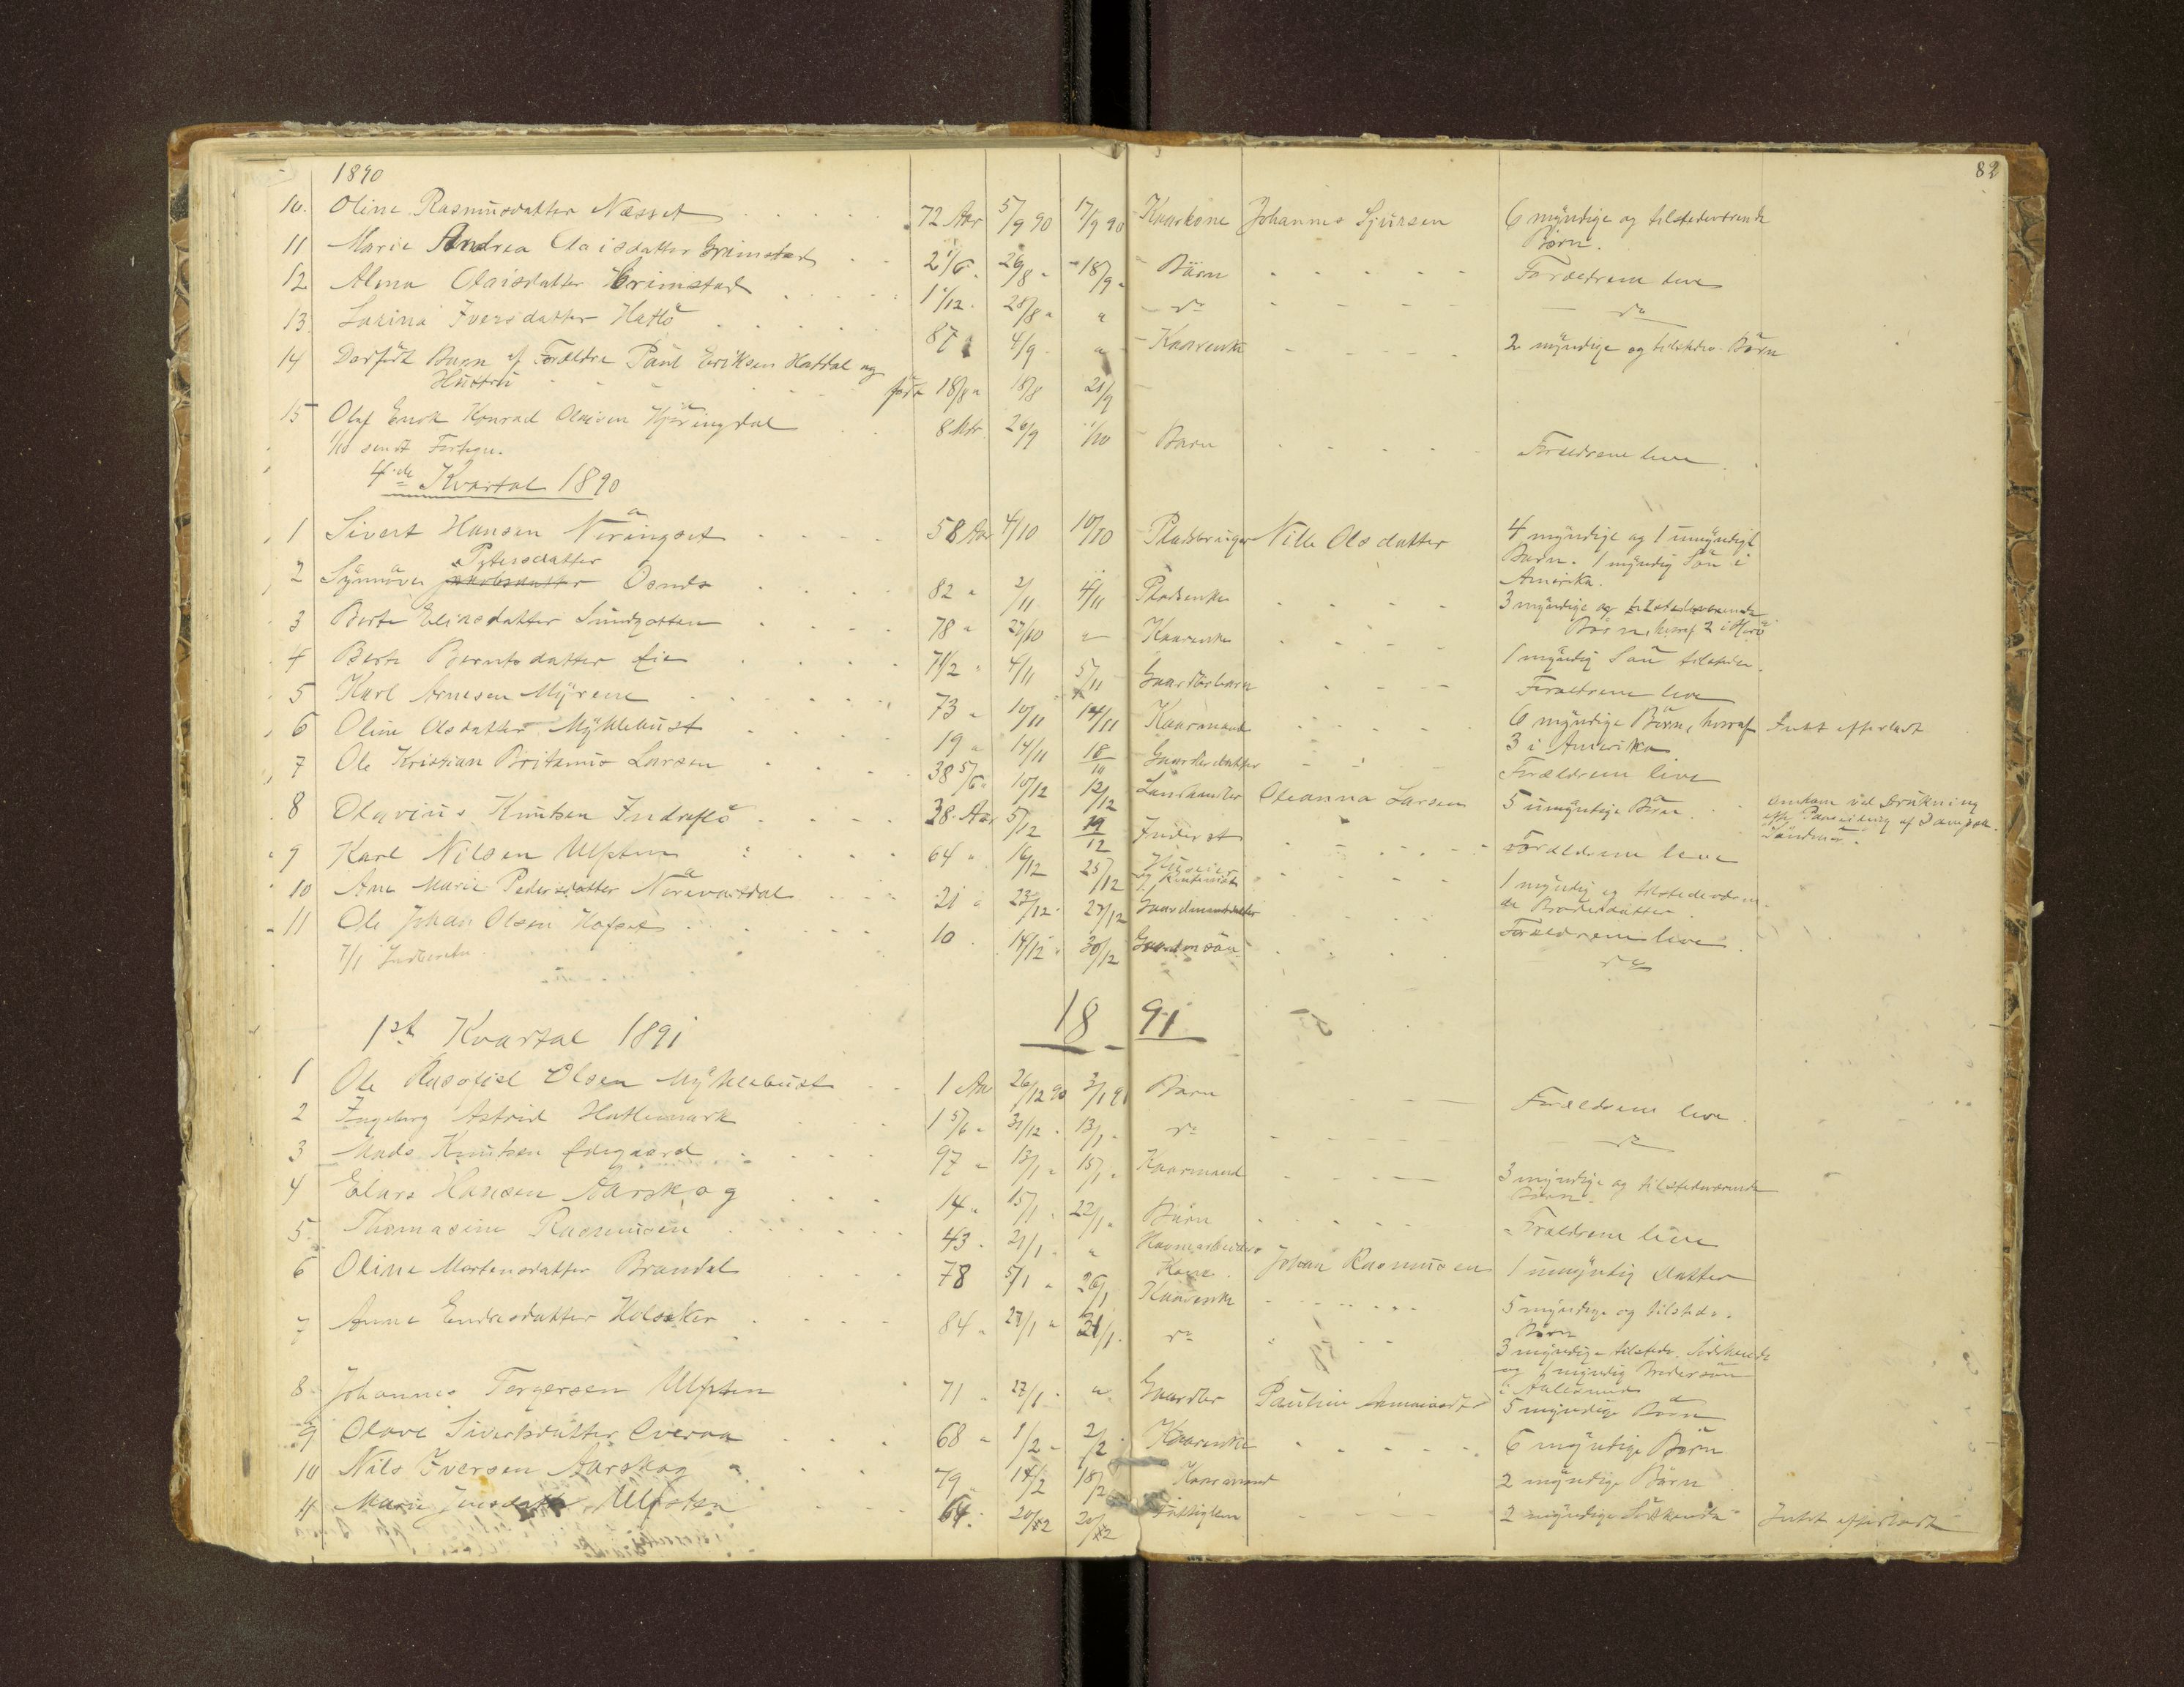 82
1890
10. Oline Rasmusdatter Næsset 72 Aar 5/9 90 17/9 90 Kaarkone Johannes Sjursen 6 myndige og tilstedeværende
Børn.
11 Marie Andrea Claisdatter Grimstad 2 1/6 26/8 " 18/9 " Børn Forældrene leve
12 Alma Claisdatter Grimstad 1 1/12 28/8 " " do do
13. Larina Iversdatter Hatlø 87 4/9 " Kaarenke 2 myndige og tilstedev. Børn
14 Dødfødt Barn af Forældre Paul Eriksen Hattdal og
Hustru født 18/8 " 18/8 21/9
15 Olaf Enok Konrad Olaisen Hjøringdal 8 Mdr. 26/9 1/10 Barn Forældrene leve
1/10 sendt Forteg.
4de Kvartal 1890
1 Sivert Hansen Nøringset 58 Aar 4/10 10/10 Pladsbruger Nille Olsdatter 4 myndige og 1 umyndigt
Barn. 1 myndig Søn i
Amerika.
Petersdatter
2 Synnøve Jakobsdatter Osnes 82 " 2/11 4/11 Pladsenke 3 myndige og tilstedeværende
Børn, hvoraf 2 i Herø
3 Berte Eliasdatter Sundgotten 78 " 27/10 " Kaarenke 1 myndig Søn tilstede.
4 Berte Berntsdatter Eie 7 1/2 " 4/11 5/11 Gaardbrbarn Forældrene leve
5 Karl Arnesen Myrene 73 " 10/11 14/11 Kaarmand 6 myndige Børn, hvoraf Intet efterladt
3 i Amerika
6 Oline Olsdatter Myklebust 19 " 14/11 18/11 Gaardbrdatter Forældrene live
7 Ole Kristian Britanus Larsen 38 5/6 " 10/12 12/12 Landhandler Oleanna Larsen 5 umyndige Børn Omkom ved Drukning
8 Olavius Knutsen Indreflø 28 Aar 5/12 19/12 Inderst Forældrene leve
9 Karl Nilsen Ulsten 64 " 16/12 25/12 Huseier 1 myndig og tilstedeværen-
de Broderdatter.
10 Ane Marie Pedersdatter Nørevartdal 21 " 23/12 " 27/12 Gaardmandsdatter Forældrene leve
11 Ole Johan Olsen Hofset 10 14/12 " 30/12 Gaardmsøn do
7/1 Indberettet
18 91
1st Kvartal 1891
1 Ole Rasofiel Olsen Myklebust 1 Aar 26/12 90 3/1 91 Barn Forældrene leve
2 Ingeborg Astrid Hatlemark 1 5/6 " 31/12 " 13/1 " do do
3 Mads Knutsen Ødegaard 97 " 13/1 " 15/1 " Kaarmand 3 myndige og tilstedeværende
Børn.
4 Elias Hansen Aarskog 14 " 15/1 " 22/1 " Børn Forældrene leve
5. Thomasine Rasmussen 43 " 21/1 " " Havnearbeiders
Kone. Johan Rasmussen 1 umyndig Datter
6 Oline Mortensdatter Brandal 78 5/1 " 26/1 Kaarenke 5 myndige og tilstede.
Børn
7 Anne Endresdatter Holsæker 84 " 23/1 " 21/1 " do 3 myndige tilstedev. Sødskende
og 1 myndig Brodersøn
i Aalesund
8 Johannes Torgersen Ulsten 71 " 27/1 " " Gaardbr 5 myndige Børn
9 Olave Sivertsdatter Overaa 68 " 1/2 " 2/2 " Kaarenke 6 myndige Børn
10 Nils Iversen Aarskog 79 14/2 18/2 Kaarmand 2 myndige Børn
11 Marie Jensdatter Ulsten 64 " 20/2 20/2 Fattiglem 2 myndige Sødskende Intet efterladt